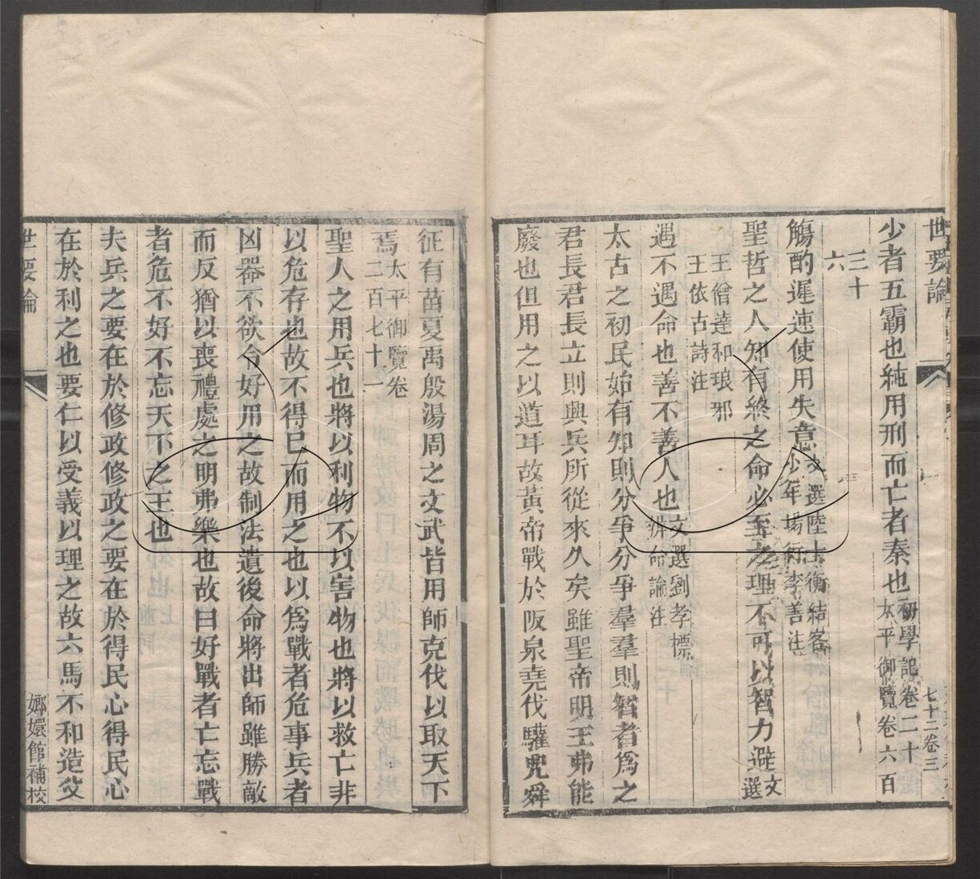 世要論
少者五霸也純用刑而亡者秦也初學記卷二十太平御覽卷六百
三十
六
觴酌遲速使用失意文選陸士衡結客少年場行李善注
聖哲之人知有終之命必至之理不可以智力避文選
王僧達和琅邪
王依古詩注
遇不遇命也善不善人也文選劉孝標辨命論注
太古之初民始有知則分爭分爭羣羣則智者為之
君長君長立則興兵所從來久矣雖聖帝明王弗能
廢也但用之以道耳故黃帝戰於阪泉堯伐驩兜舜
征有苗夏禹殷湯周之文武皆用師克伐以取天下
焉太平御覽卷二百七十一
聖人之用兵也將以利物不以害物也將以救亡非
以危存也故不得已而用之也以為戰者危事兵者
凶器不欲令好用之故制法遺後命將出師雖勝敵
而反猶以喪禮處之明弗樂也故曰好戰者亡忘戰
者危不好不忘天下之王也
夫兵之要在於修政修政之要在於得民心得民心
在於利之也要仁以受義以理之故六馬不和造父
世要論
嫏嬛館補校